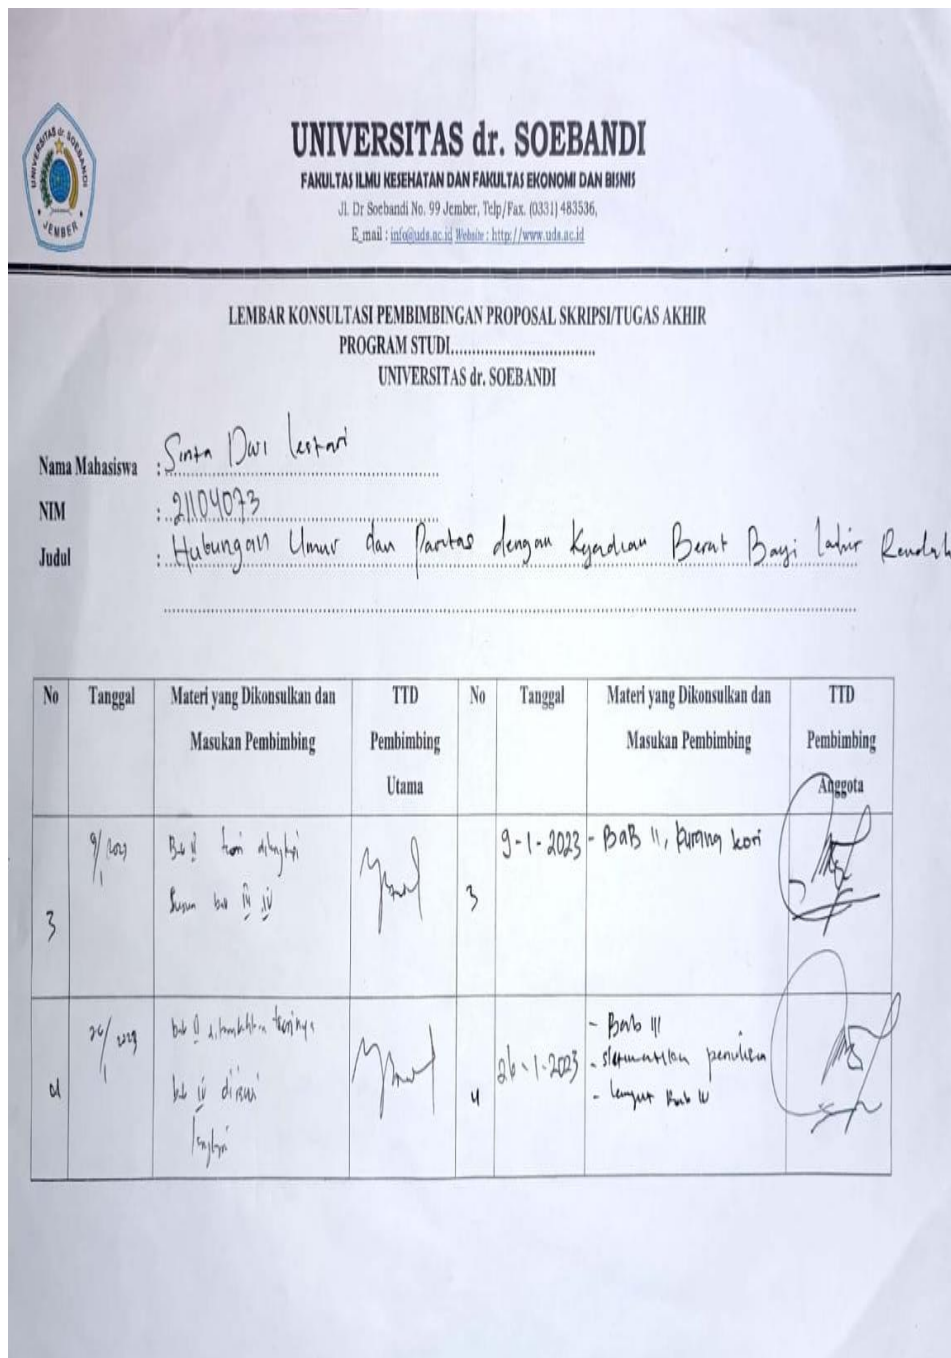 UNIVERSITAS dr. SOEBANDI
JEMBER
UNIVERSITAS dr. SOEBANDI
FAKULTAS ILMU KESEHATAN DAN FAKULTAS EKONOMI DAN BISNIS
Jl. Dr Soebandi No. 99 Jember, Telp/Fax. (0331) 483536,
E_mail : info@uds.ac.id Website : http://www.uds.ac.id
LEMBAR KONSULTASI PEMBIMBINGAN PROPOSAL SKRIPSI/TUGAS AKHIR
PROGRAM STUDI.................................
UNIVERSITAS dr. SOEBANDI
Nama Mahasiswa : Sinta Dwi Lestari
NIM : 21104073
Judul : Hubungan Umur dan Paritas dengan Kejadian Berat Bayi Lahir Rendah
No Tanggal Materi yang Dikonsulkan dan TTD No Tanggal Materi yang Dikonsulkan dan TTD
Masukan Pembimbing Pembimbing Masukan Pembimbing Pembimbing
Utama Anggota
9/1 2023 Bab II 9-1-2023 - BaB II, kurang
Susun bab III IV
3 3
26/1 2023 bab II ditambahkan teorinya - Bab III
26-1-2023 - sistematika penulisan
bab IV - Bab IV
4 4